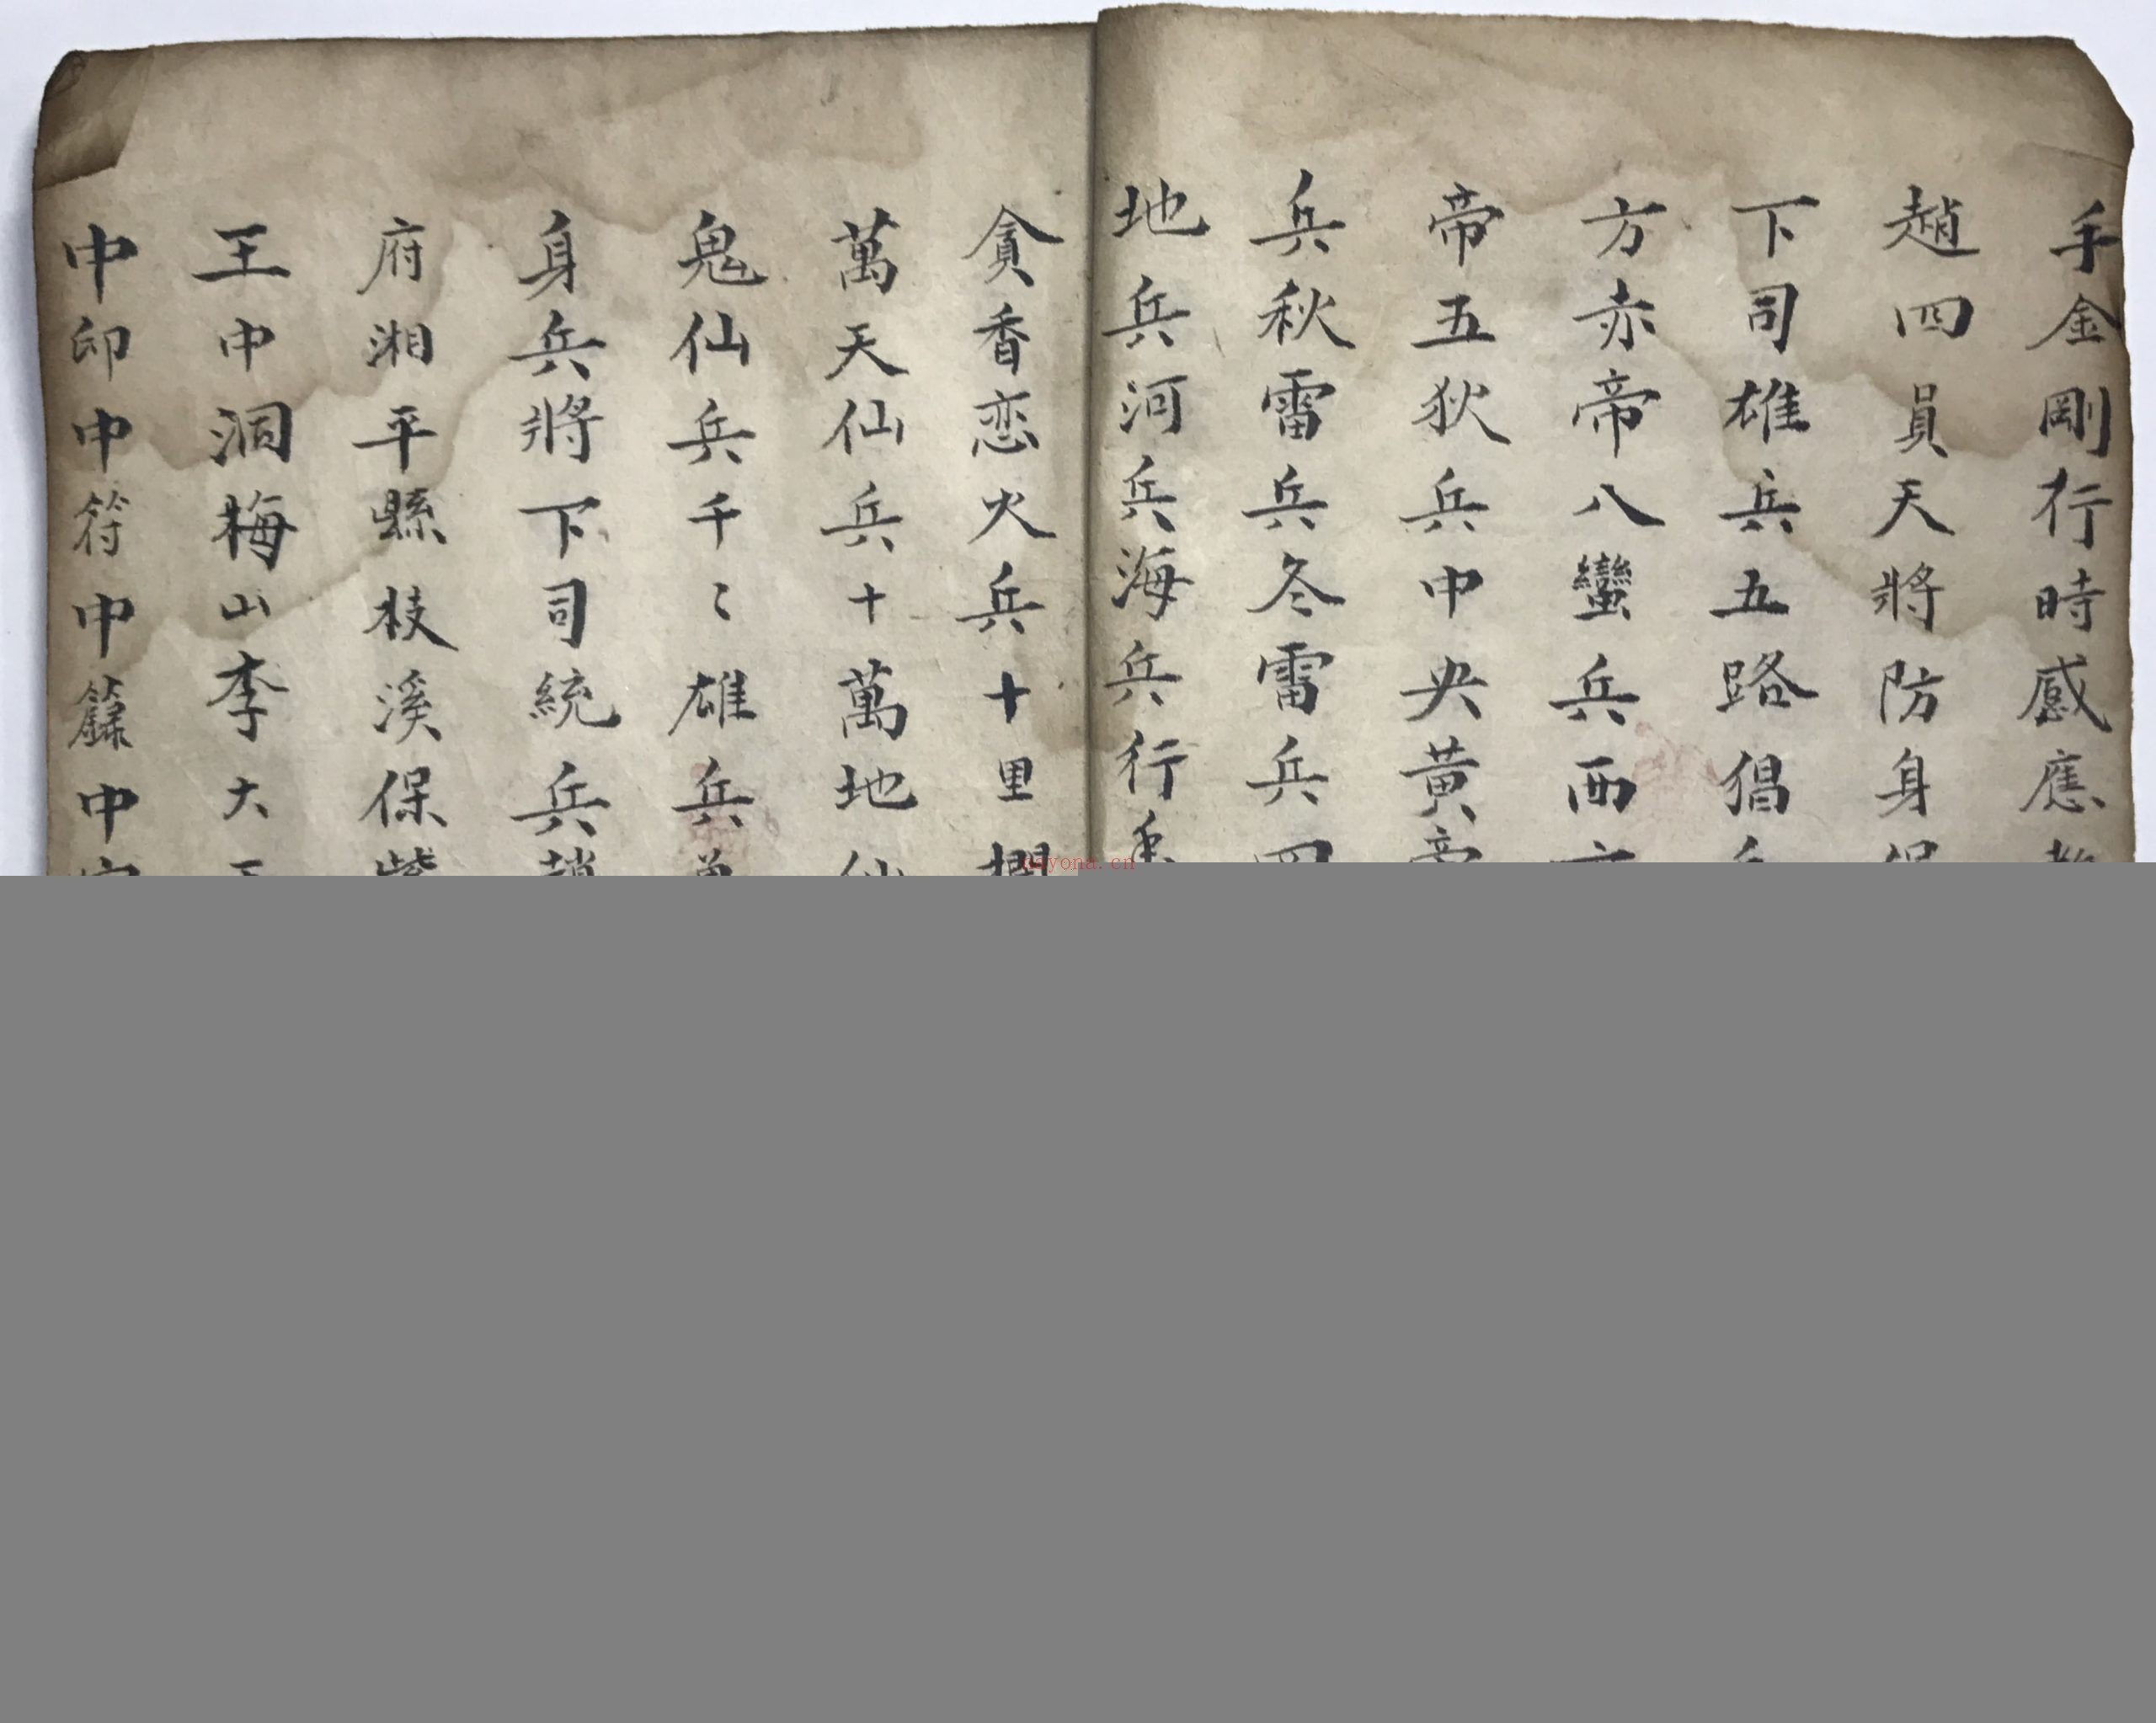 手金剛行時感應
趙四員天將防身保
下司雄兵五路倡
方赤帝八蠻兵西方
帝五狄兵中央黃帝
兵秋雷兵冬雷兵四
地兵河兵海兵行
貪香恋火兵十里
萬天仙兵十萬地仙
鬼仙兵千〻雄兵萬
身兵將下司統兵趙
府湘平縣枝溪保
王中洞梅山李大王
中印中符中籙中